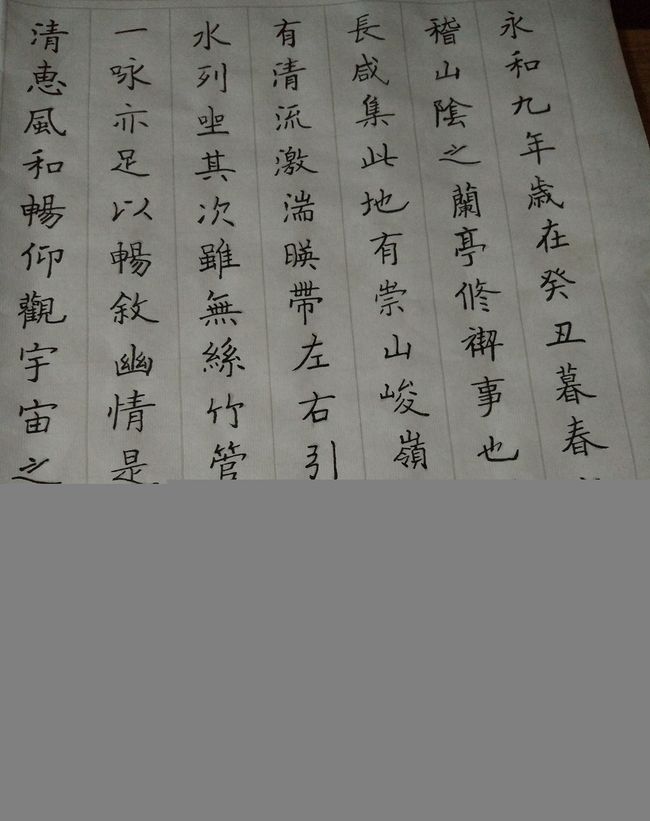 永和九年歲在癸丑暮春
稽山陰之蘭亭修禊事也
長咸集此地有崇山峻嶺
有清流激湍暎帶左右引
水列坐其次雖無絲竹管
一咏亦足以暢敘幽情是
清惠風和暢仰觀宇宙之